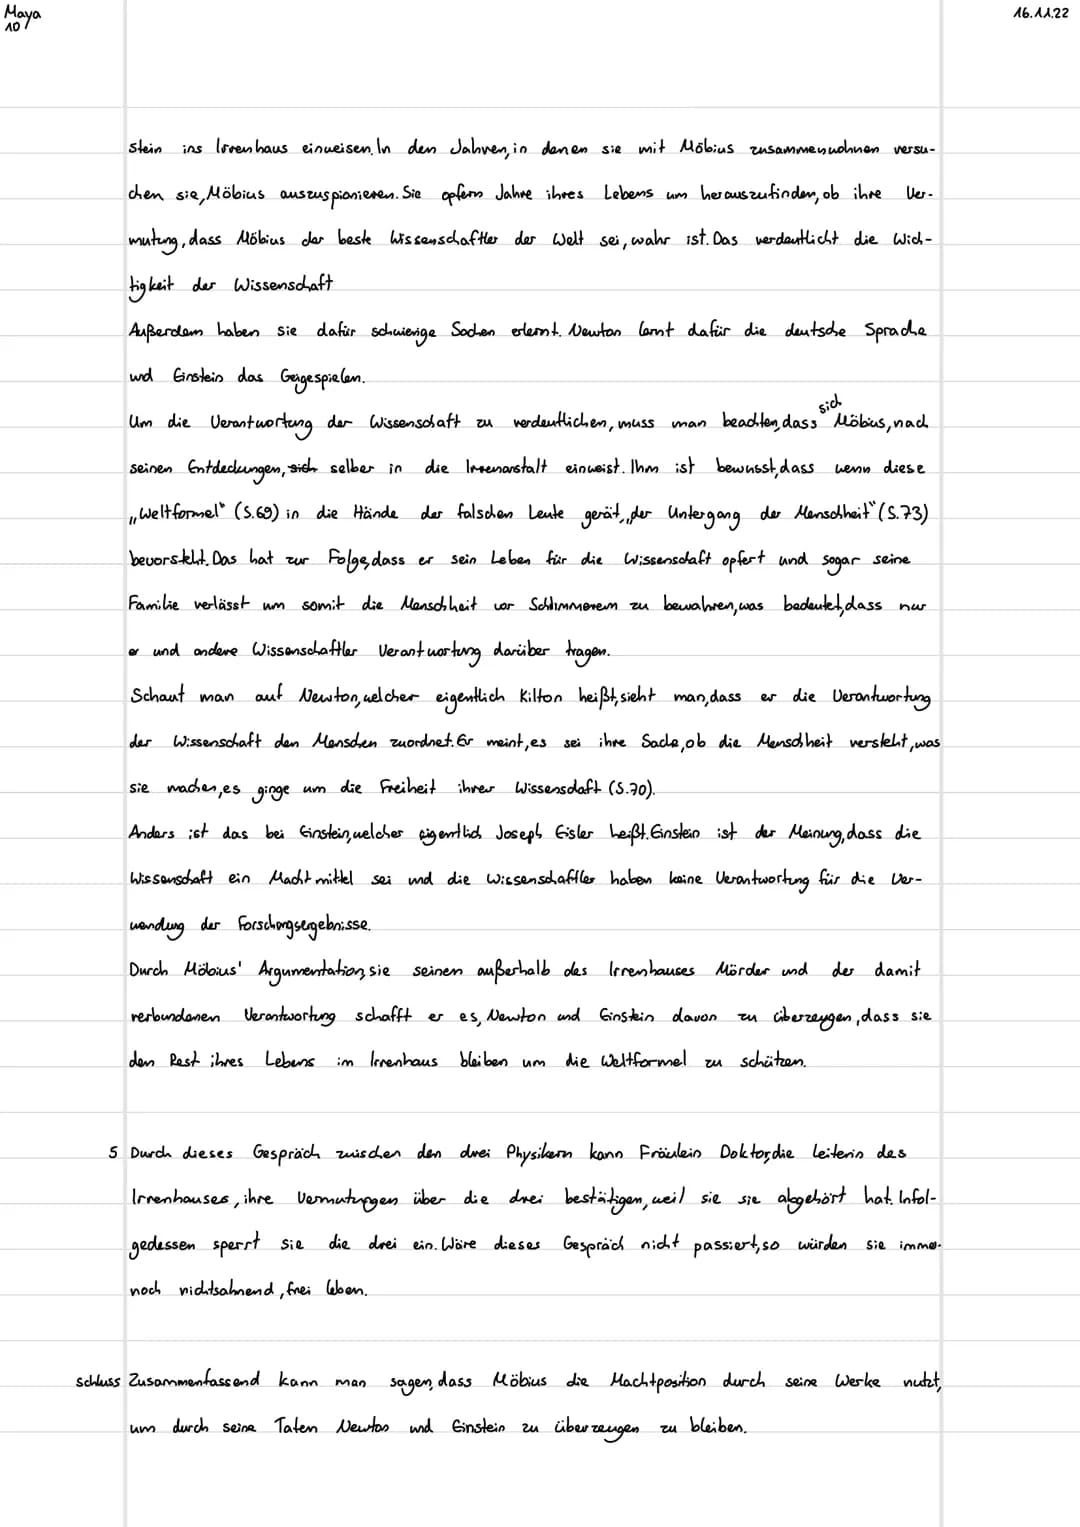 Maya
10
16.11.22
stein ins Irrenhaus einweisen. In den Jahren, in denen sie mit Möbius zusammenwohnen versu-
chen sie, Möbius auszuspionieren. Sie opfern Jahre ihres Lebens um herauszufinden, ob ihre Ver-
mutung, dass Möbius der beste Wissenschaftler der Welt sei, wahr ist. Das verdeutlicht die Wich-
tigkeit der Wissenschaft
Außerdem haben sie dafür schwierige Sachen erlernt. Newton lernt dafür die deutsche Sprache
und Einstein das Geigespielen.
Um die Verantwortung der Wissenschaft zu verdeutlichen, muss man beachten, dass sich Möbius, nach
seinen Entdeckungen, sich selber in die Irrenanstalt einweist. Ihm ist bewusst, dass wenn diese
„Weltformel“ (S.69) in die Hände der falschen Leute gerät, „der Untergang der Menschheit“ (S.73)
bevorsteht. Das hat zur Folge, dass er sein Leben für die Wissenschaft opfert und sogar seine
Familie verlässt um somit die Menschheit vor Schlimmerem zu bewahren, was bedeutet, dass nur
er und andere Wissenschaftler Verantwortung darüber tragen.
Schaut man auf Newton, welcher eigentlich Kilton heißt, sieht man, dass er die Verantwortung
der Wissenschaft den Menschen zuordnet. Er meint, es sei ihre Sache, ob die Menschheit versteht, was
sie machen, es ginge um die Freiheit ihrer Wissenschaft (S.70).
Anders ist das bei Einstein, welcher eigentlich Joseph Eisler heißt. Einstein ist der Meinung, dass die
Wissenschaft ein Machtmittel sei und die Wissenschaftler haben keine Verantwortung für die Ver-
wendung der Forschungsergebnisse.
Durch Möbius' Argumentation, sie seinen außerhalb des Irrenhauses Mörder und der damit
verbundenen Verantwortung schafft er es, Newton und Einstein davon zu überzeugen, dass sie
den Rest ihres Lebens im Irrenhaus bleiben um die Weltformel zu schützen.
5 Durch dieses Gespräch zwischen den drei Physikern kann Fräulein Doktor, die Leiterin des
Irrenhauses, ihre Vermutungen über die drei bestätigen, weil sie sie abgehört hat. Infol-
gedessen sperrt sie die drei ein. Wäre dieses Gespräch nicht passiert, so würden sie immer
noch nichtsahnend, frei leben.
schluss Zusammenfassend kann man sagen, dass Möbius die Machtposition durch seine Werke nutzt,
um durch seine Taten Newton und Einstein zu überzeugen zu bleiben.